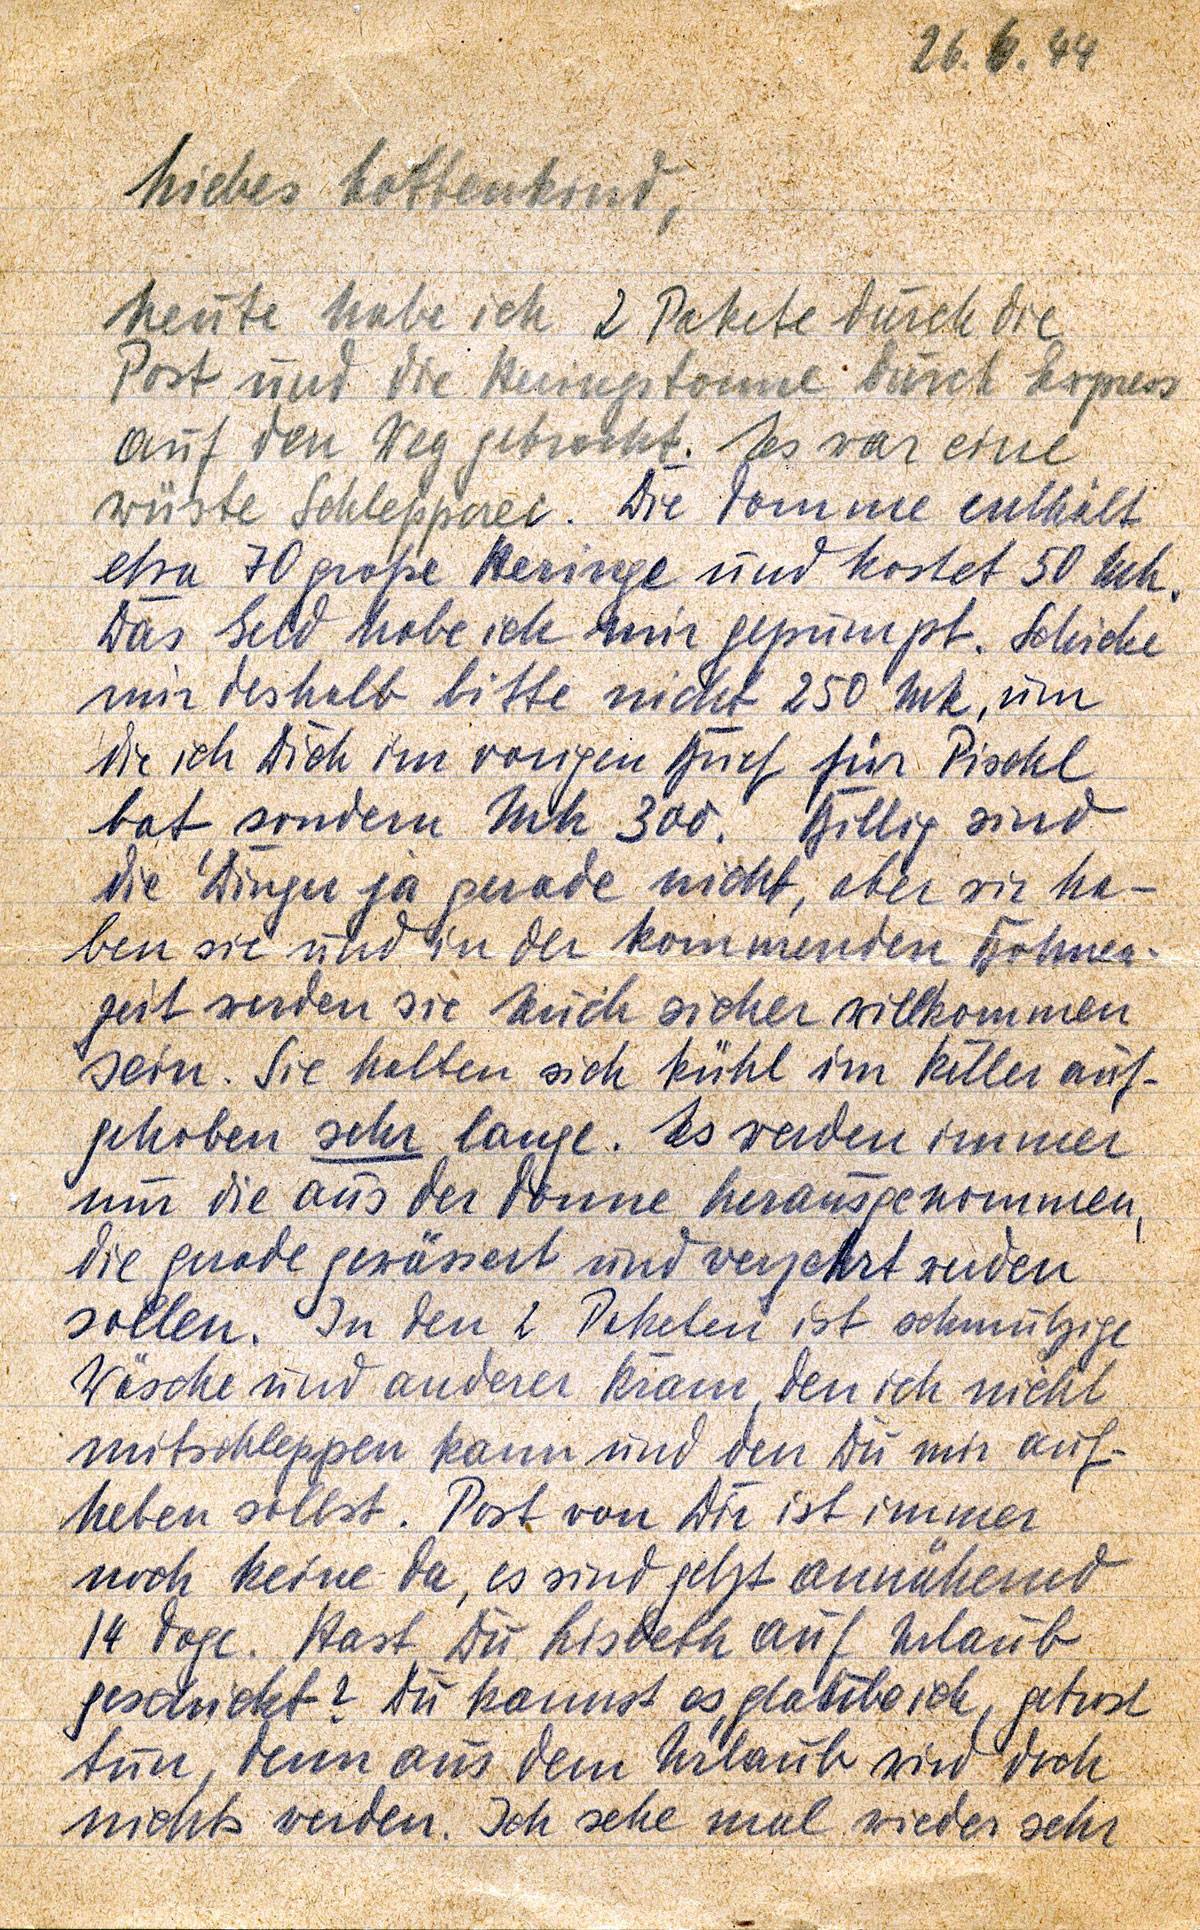 26. 6. 44
Liebes Lottenkind,
heute habe ich 2 Pakete durch die
Post und die Heringstonne durch Express
auf den Weg gebracht. Es war eine
wüste Schlepperei. Die Tonne enthält
etwa 70 große Heringe und kostet 50 Mk.
Das Geld habe ich mir gepumpt. Schicke
mir deshalb bitte nicht 250 Mk, um
die ich Dich im vorigen Brief für Pischl
bat sondern Mk 300. Billig sind
die Dinger ja gerade nicht, aber wir ha-
ben sie und in der kommenden Bohnen-
zeit werden sie Euch sicher willkommen
sein. Sie halten sich kühl im Keller auf-
gehoben sehr lange. Es werden immer
nur die aus der Tonne herausgenommen,
die gerade gewässert und verzehrt werden
sollen. In den 2 Paketen ist schmutzige
Wäsche und anderer Kram, den ich nicht
mitschleppen kann und den Du mir auf-
heben sollst. Post von Dir ist immer
noch keine da, es sind jetzt annähernd
14 Tage. Hast Du Lisbeth auf Urlaub
geschickt? Du kannst es, glaube ich, getrost
tun, denn aus dem Urlaub wird doch
nichts werden. Ich sehe mal wieder sehr